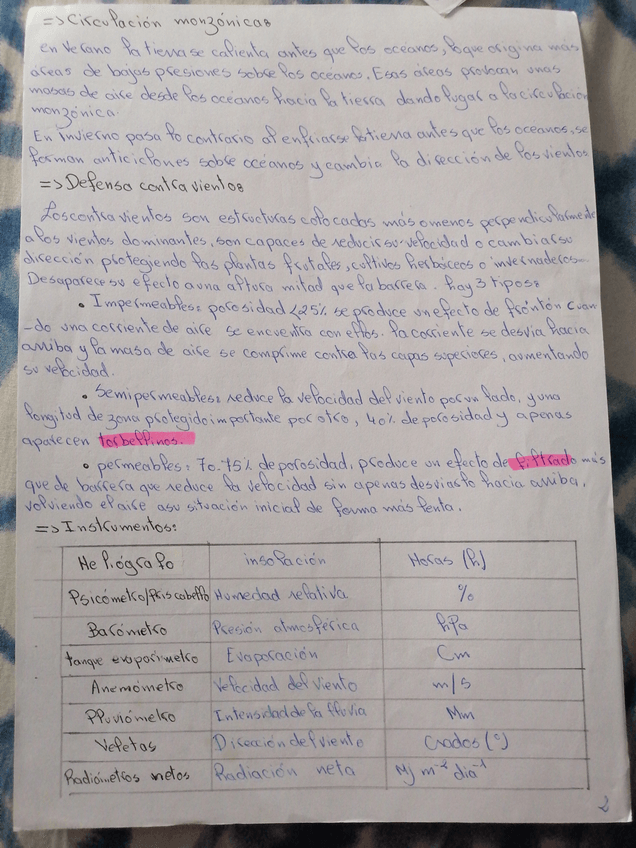 => Circulación monzónicas
en verano la tierra se calienta antes que los océanos, lo que origina más
áreas de bajas presiones sobre los océanos. Esas áreas provocan unas
masas de aire desde los océanos hacia la tierra dando lugar a la circulación
monzónica.
En invierno pasa lo contrario al enfriarse la tierra antes que los oceanos, se
forman anticiclones sobre océanos y cambia la dirección de los vientos
=> Defensa contra vientos
Los contra vientos son estructuras colocadas más o menos perpendicularmente
a los vientos dominantes, son capaces de reducir su velocidad o cambiar su
dirección protegiendo las plantas frutales, cultivos herbáceos o invernaderos...
Desaparece su efecto a una altura mitad que la barrera. hay 3 tipos:
• Impermeables: porosidad <25% se produce un efecto de frontón cuan
-do una corriente de aire se encuentra con ellos. la corriente se desvia hacia
arriba y la masa de aire se comprime contra las capas superiores, aumentando
su velocidad.
• Semipermeables: reduce la velocidad del viento por un lado, y una
longitud de zona protegida importante por otro, 40% de porosidad y apenas
aparecen torbellinos.
• permeables: 70-75% de porosidad, produce un efecto de filtrado más
que de barrera que reduce la velocidad sin apenas desviarlo hacia arriba,
volviendo el aire a su situación inicial de forma más lenta.
=> Instrumentos:
Heliógrafo insolación Horas (h)
Psicómetro/Priscabello Humedad relativa %
Barómetro Presión atmosférica hPa
tanque evaporimetro Evaporación Cm
Anemómetro Velocidad del viento m/s
Pluviómetro Intensidad de la lluvia Mm
Veletas Dirección del viento Grados (°)
Radiómetros netos Radiación neta Mj m⁻² dia⁻¹
2